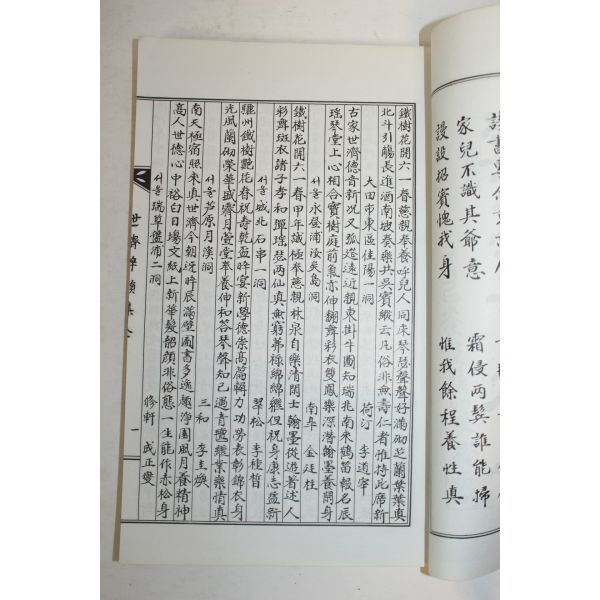 家兒不識其爺意 霜侵两鬂誰能掃
謾設招賓愧我身 惟我餘程養性真
鐵樹花開六一春慈親奉養呼兒人同床琴瑟聲聲好滿砌芝蘭葉葉真
北斗引觴長進酒南坡奏樂共吳賓縱云凡俗非無壽仁者惟持此席新
大田市東區佳陽一洞 荷汀 李道宰
古家世濟德音新况又弧筵遠近親東掛牛圖知瑞北南來鶴笛報名辰
瑤琴堂上心相合寶樹庭前氣亦伸翩舞彩衣雙鳳樂深潛翰墨養閒身
서울永登浦汝矣島洞 南皐 金廷桂
鐵樹花開六一春甲年誠極奉慈親林泉自樂清閒士翰墨從遊著述人
彩舞斑衣諸子孝和彈瑤瑟两仙真無窮祿綿綿繼但祝身康志益新
서울城北石串一洞 翠松 李種晳
驪州鐵樹艶花春祝壽乾盃昨宴新學德崇高篇輯力功勞表彰錦衣身
光風蘭砌榮華盛霽月萱堂奉養伸和答琴聲知己適青氈繼業樂情真
서울芦原月溪洞 三和 李圭煥
南天極宿照來真世濟今朝迓昨辰滿壁圖書多逸趣淨園風月養精神
高人世德心中裕白日場文紙上新華髮韶顔非俗態一生能作赤松身
서울瑞草盤浦二洞 修軒 成正燮
世濟 一